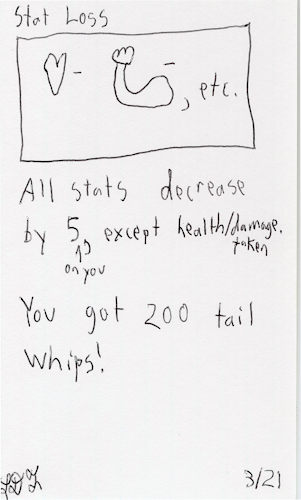 Stat Loss
- -, etc.
All stats decrease
by 5, except health/damage.
on you
taken
You got 200 tail
whips!
3/21